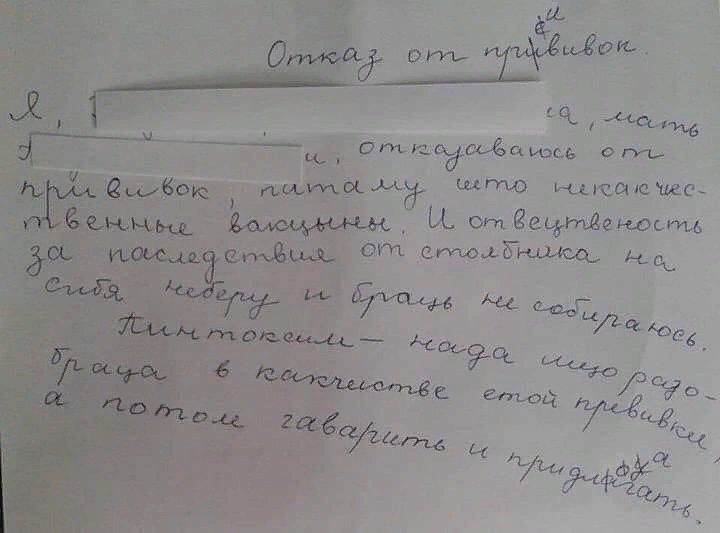 Отказ от прививок.
Я, са, мать
и, отказаваюсь от
прививок, патаму што некакчес-
твенные вакцыны. И отвецтвеность
за паследствия от столбняка на
сибя неберу и браць не собираюсь.
Пинтоксим — нада ищо разо-
браца в какчистве етой превивки,
а потом гаварить и придлагать.